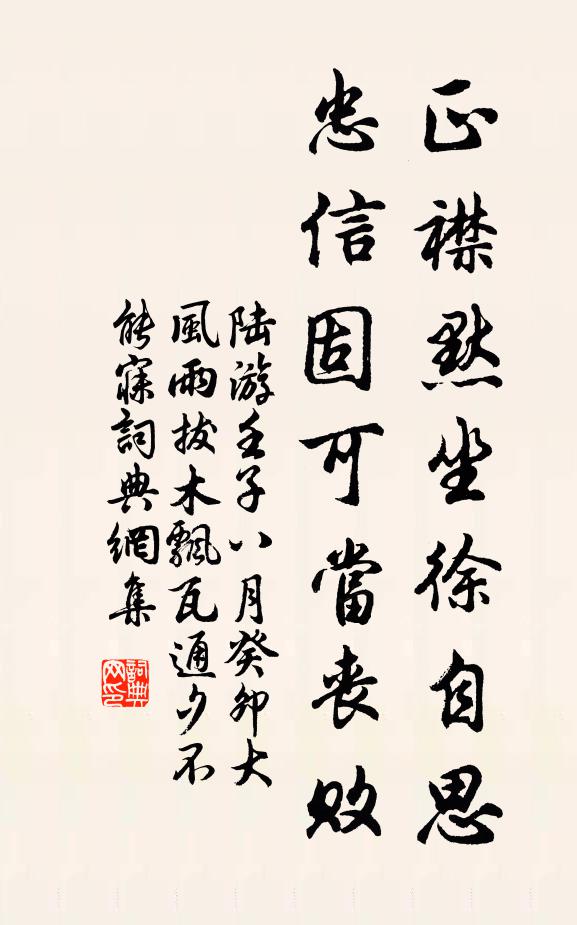 正襟默坐徐自思
忠信固可當喪敗
陸游壬子八月癸卯大
風雨拔木飄瓦通夕不
能寐詞典網集
詞典网印